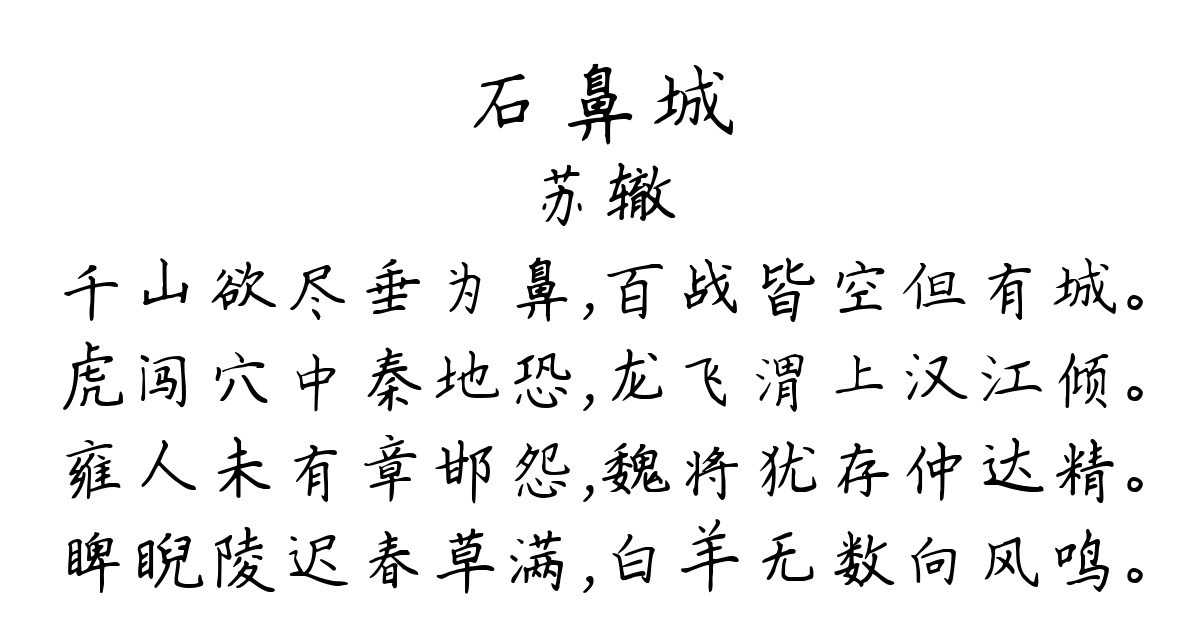 石鼻城
苏辙
千山欲尽垂为鼻,百战皆空但有城。
虎闯穴中秦地恐,龙飞渭上汉江倾。
雍人未有章邯怨,魏将犹存仲达精。
睥睨陵迟春草满,白羊无数向风鸣。